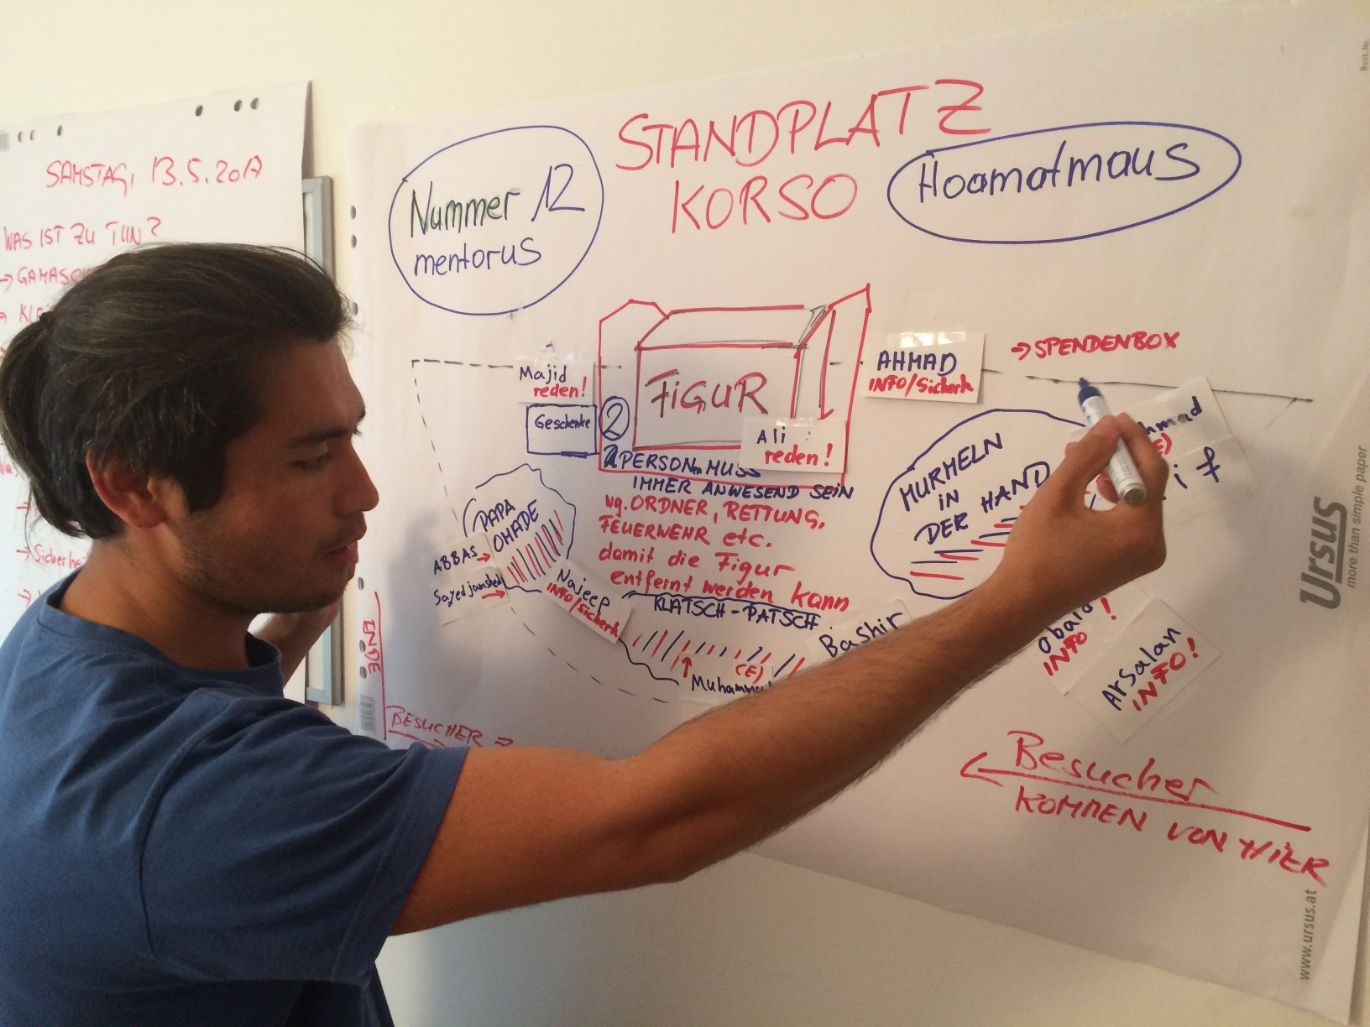 SAMSTAG, 13.5.2017
WAS IST ZU TUN?
STANDPLATZ
KORSO
Nummer 12
mentorus
Hoamatmaus
Majid
reden!
Geschenke
2
FIGUR
Ali
reden!
AHMAD
INFO/Sicherh
→ SPENDENBOX
2 PERSON MUSS
IMMER ANWESEND SEIN
wg. ORDNER, RETTUNG,
FEUERWEHR etc.
damit die Figur
entfernt werden kann
PAPA
OHADE
ABBAS
Najeep
INFO/Sicherh
KLATSCH-PATSCH
(E)
Bashir
MURMELN
IN
DER HAND
INFO!
Arsalan
INFO!
ENDE
BESUCHER
Besucher
KOMMEN VON HIER
Ursus
more than simple paper
www.ursus.at